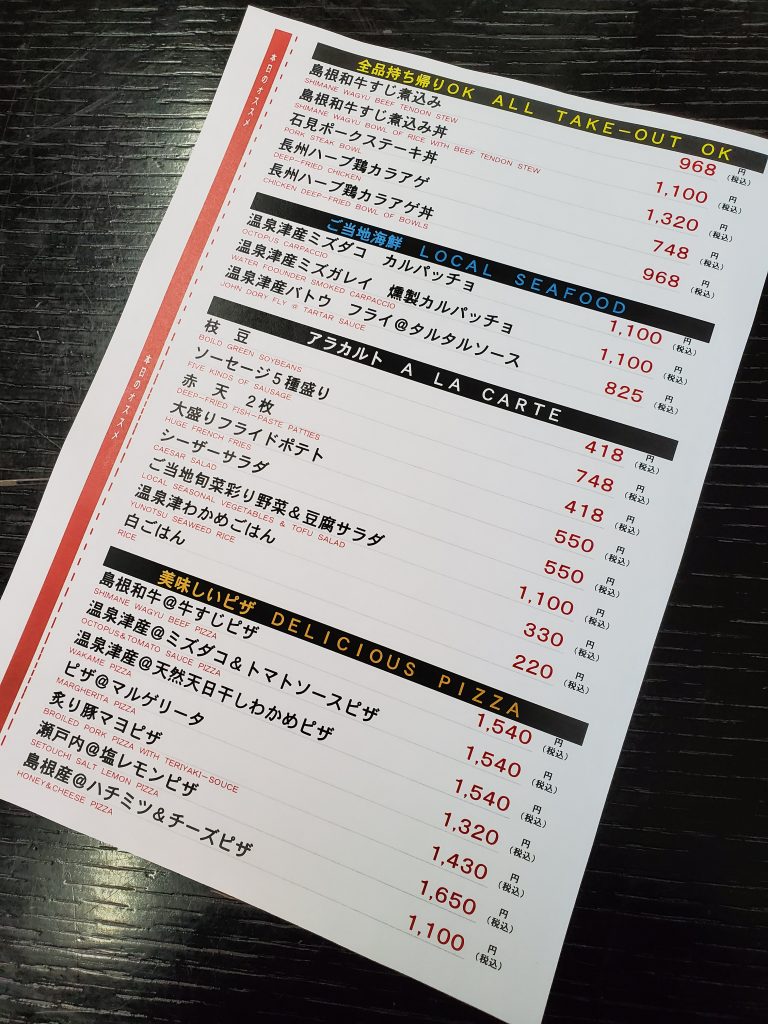 本日のオススメ
本日のオススメ
全品持ち帰りOK ALL TAKE-OUT OK
島根和牛すじ煮込み 968 円(税込)
SHIMANE WAGYU BEEF TENDON STEW
島根和牛すじ煮込み丼 1,100 円(税込)
SHIMANE WAGYU BOWL OF RICE WITH BEEF TENDON STEW
石見ポークステーキ丼 1,320 円(税込)
PORK STEAK BOWL
長州ハーブ鶏カラアゲ 748 円(税込)
DEEP-FRIED CHICKEN
長州ハーブ鶏カラアゲ丼 968 円(税込)
CHICKEN DEEP-FRIED BOWL OF BOWLS
ご当地海鮮 LOCAL SEAFOOD
温泉津産ミズダコ カルパッチョ 1,100 円(税込)
OCTOPUS CARPACCIO
温泉津産ミズガレイ 燻製カルパッチョ 1,100 円(税込)
WATER FOOUNDER SMOKED CARPACCIO
温泉津産バトウ フライ@タルタルソース 825 円(税込)
JOHN DORY FLY @ TARTAR SAUCE
アラカルト A LA CARTE
枝 豆 418 円(税込)
BOILD GREEN SOYBEANS
ソーセージ5種盛り 748 円(税込)
FIVE KINDS OF SAUSAGE
赤 天 2枚 418 円(税込)
DEEP-FRIED FISH-PASTE PATTIES
大盛りフライドポテト 550 円(税込)
HUGE FRENCH FRIES
シーザーサラダ 550 円(税込)
CAESAR SALAD
ご当地旬菜彩り野菜&豆腐サラダ 1,100 円(税込)
LOCAL SEASONAL VEGETABLES & TOFU SALAD
温泉津わかめごはん 330 円(税込)
YUNOTSU SEAWEED RICE
白ごはん 220 円(税込)
RICE
美味しいピザ DELICIOUS PIZZA
島根和牛@牛すじピザ 1,540 円(税込)
SHIMANE WAGYU BEEF PIZZA
温泉津産@ミズダコ&トマトソースピザ 1,540 円(税込)
OCTOPUS&TOMATO SAUCE PIZZA
温泉津産@天然天日干しわかめピザ 1,540 円(税込)
WAKAME PIZZA
ピザ@マルゲリータ 1,320 円(税込)
MARGHERITA PIZZA
炙り豚マヨピザ 1,430 円(税込)
BROILED PORK PIZZA WITH TERIYAKI-SOUCE
瀬戸内@塩レモンピザ 1,650 円(税込)
SETOUCHI SALT LEMON PIZZA
島根産@ハチミツ&チーズピザ 1,100 円(税込)
HONEY&CHEESE PIZZA